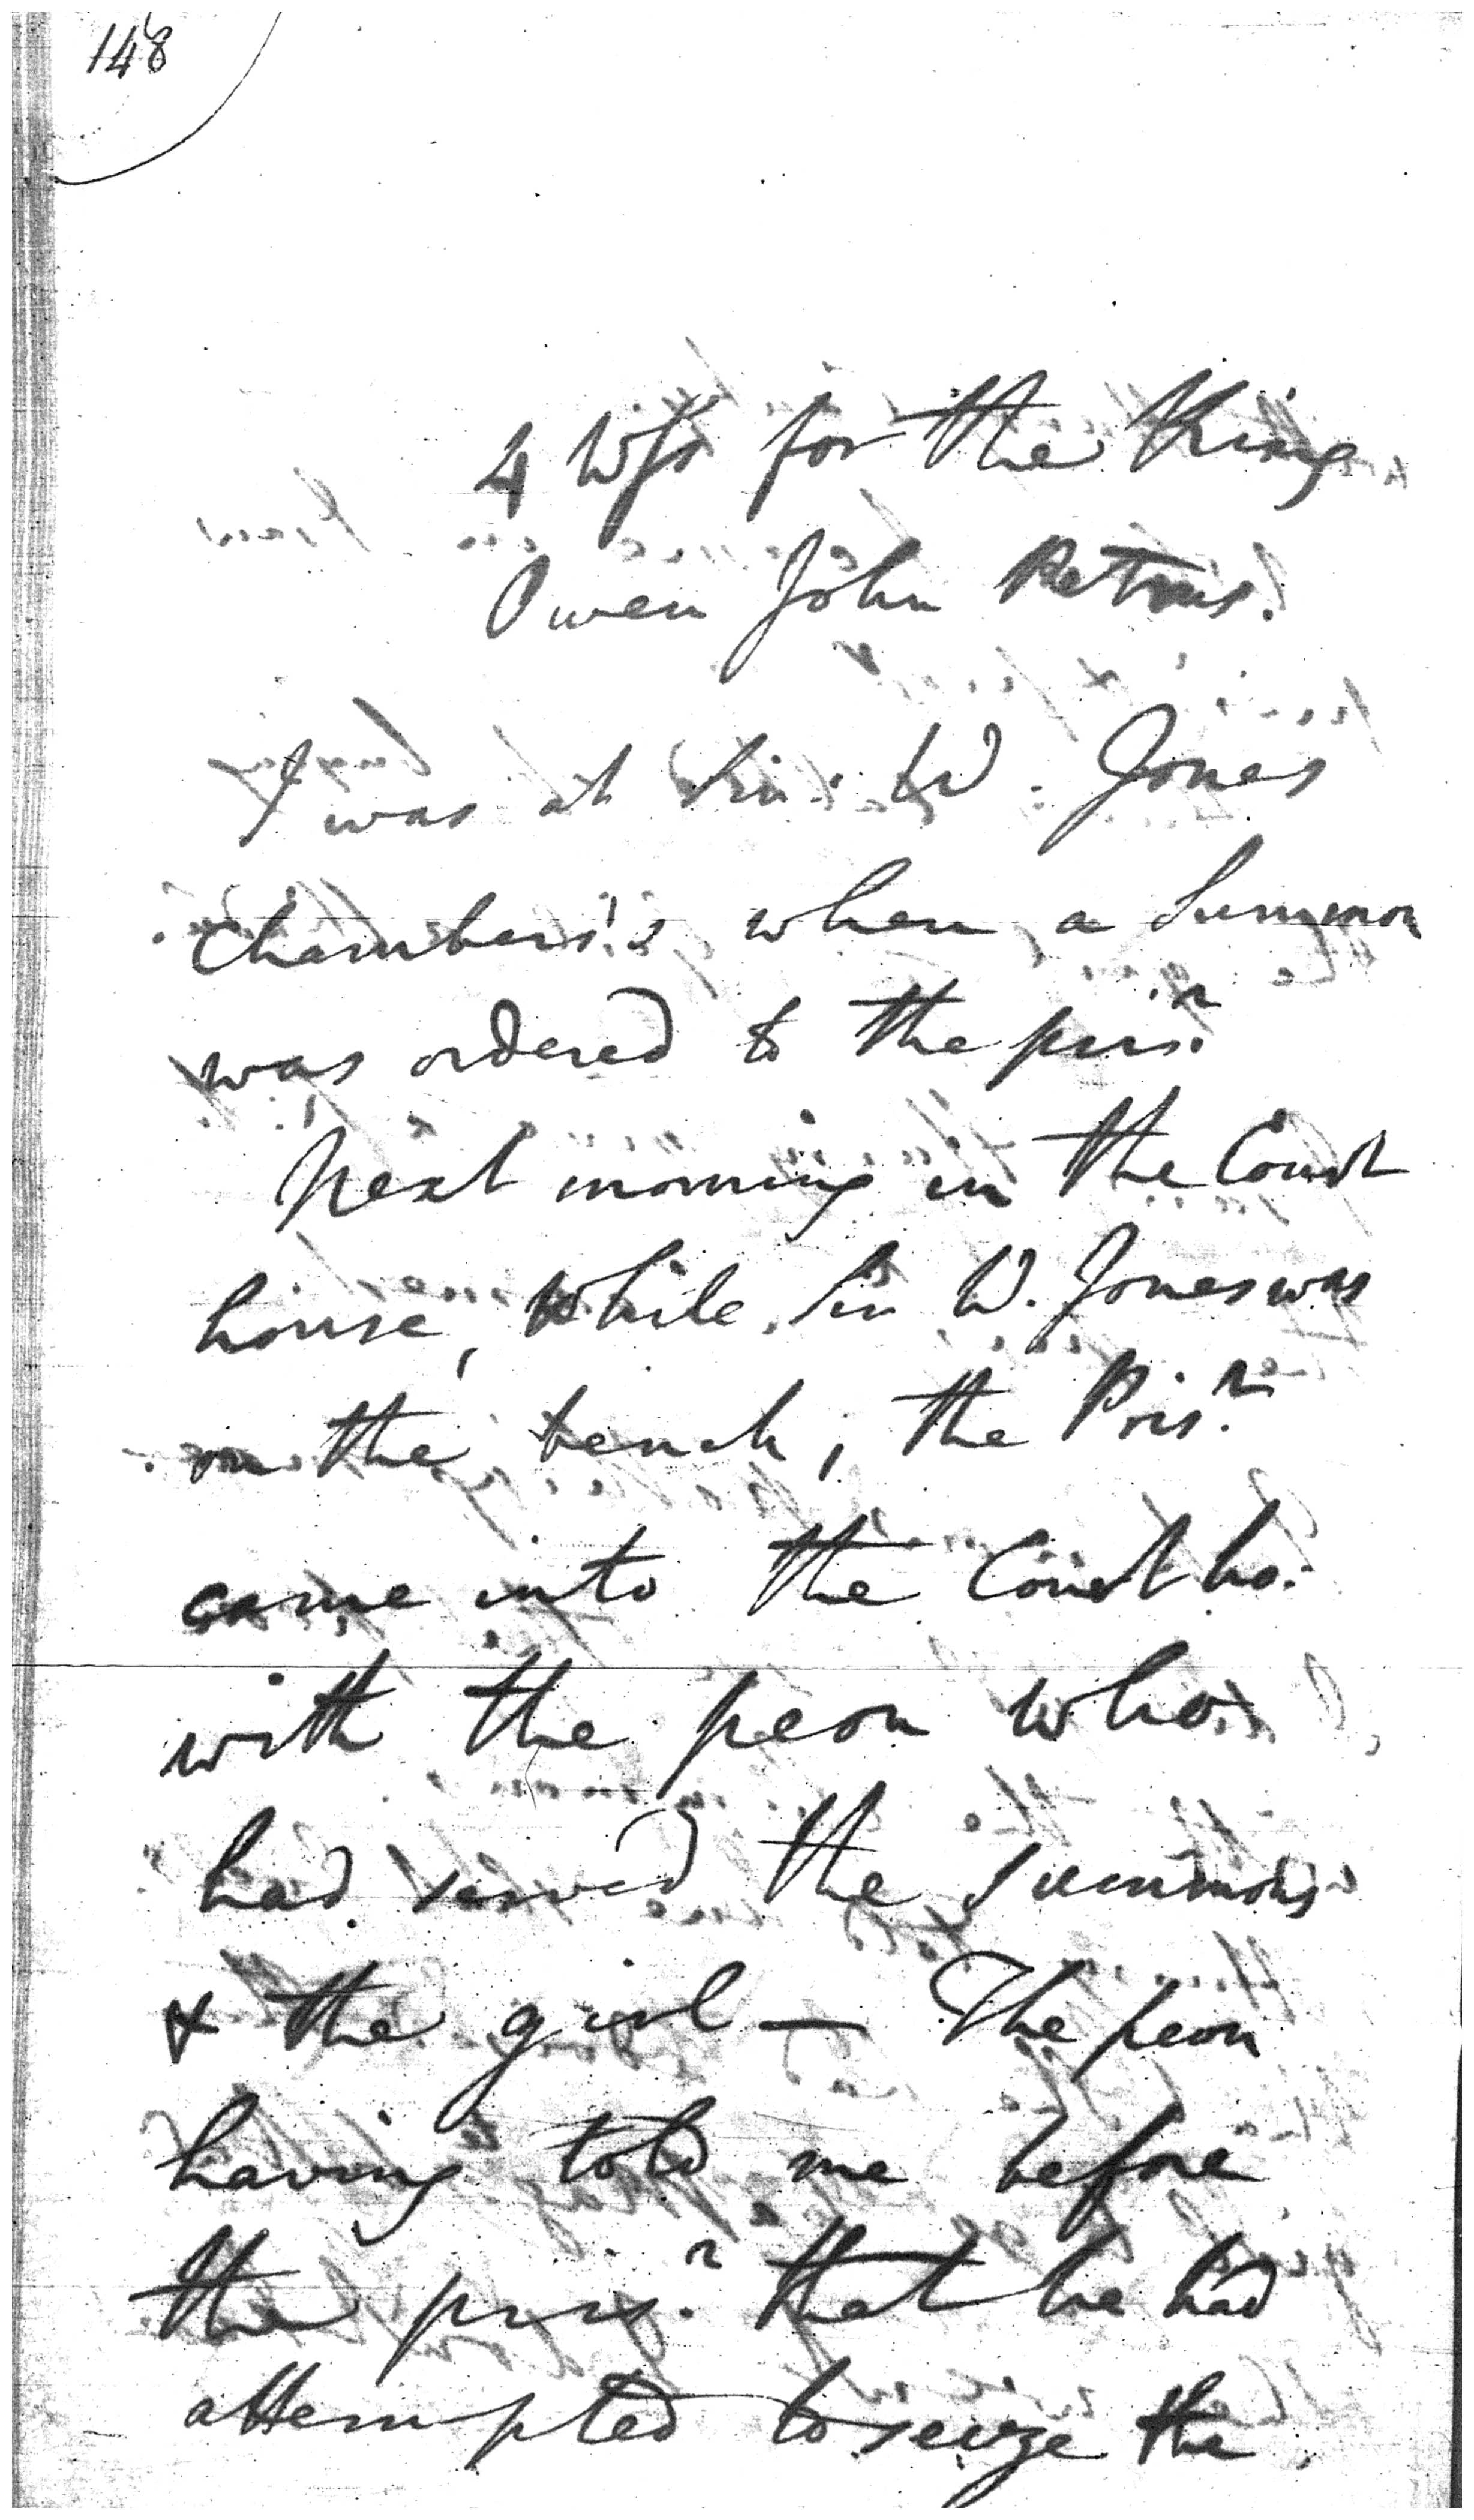 148
4 Wss for the King
Owen John Petrus.
I was at Sir W. Jones
Chambers's when a Summon
was ordered to the pris.r
Next morning in the Court
house, while Sir W. Jones was
on the bench, the Pris.r
came into the Court ho.
with the peon who
had served the summons
& the girl — The peon
having told me before
the pris.r that he had
attempted to seize the